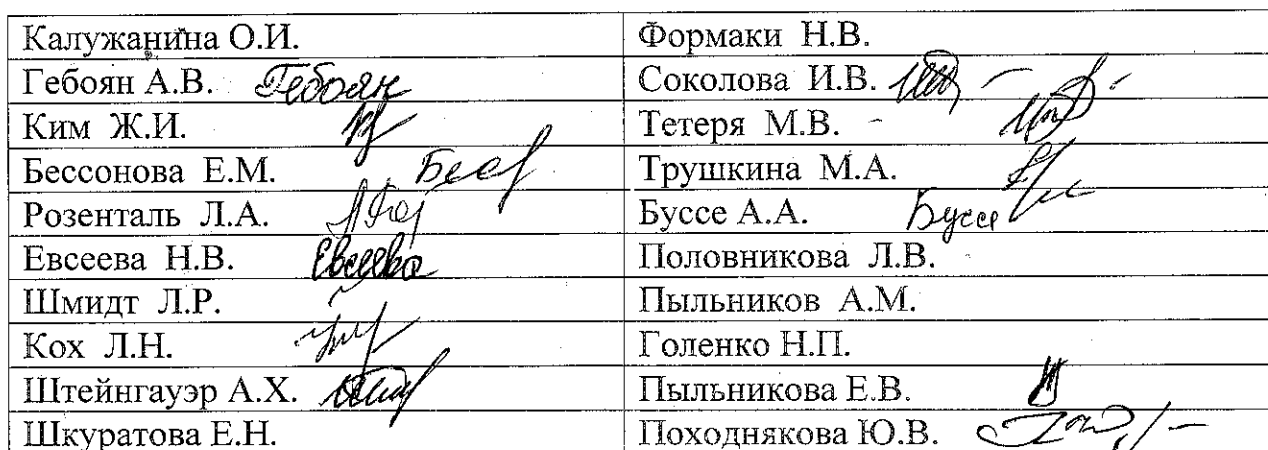 Калужанина О.И. Формаки Н.В.
Гебоян А.В. Гебоян Соколова И.В.
Ким Ж.И. Тетеря М.В.
Бессонова Е.М. Бесс Трушкина М.А.
Розенталь Л.А. Буссе А.А. Буссе
Евсеева Н.В. Евсеева Половникова Л.В.
Шмидт Л.Р. Пыльников А.М.
Кох Л.Н. Голенко Н.П.
Штейнгауэр А.Х. Пыльникова Е.В.
Шкуратова Е.Н. Походнякова Ю.В.